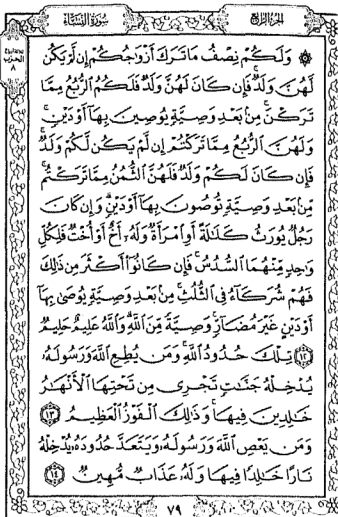 الجزء الرابع
سورة النساء
الحزب
٨
۞ وَلَكُمْ نِصْفُ مَا تَرَكَ أَزْوَاجُكُمْ إِن لَّمْ يَكُن
لَّهُنَّ وَلَدٌ فَإِن كَانَ لَهُنَّ وَلَدٌ فَلَكُمُ الرُّبُعُ مِمَّا
تَرَكْنَ مِنۢ بَعْدِ وَصِيَّةٍ يُوصِينَ بِهَا أَوْ دَيْنٍ
وَلَهُنَّ الرُّبُعُ مِمَّا تَرَكْتُمْ إِن لَّمْ يَكُن لَّكُمْ وَلَدٌ
فَإِن كَانَ لَكُمْ وَلَدٌ فَلَهُنَّ الثُّمُنُ مِمَّا تَرَكْتُم
مِّنۢ بَعْدِ وَصِيَّةٍ تُوصُونَ بِهَا أَوْ دَيْنٍ وَإِن كَانَ
رَجُلٌ يُورَثُ كَلَالَةً أَوِ امْرَأَةٌ وَلَهُ أَخٌ أَوْ أُخْتٌ فَلِكُلِّ
وَاحِدٍ مِّنْهُمَا السُّدُسُ فَإِن كَانُوا أَكْثَرَ مِن ذَٰلِكَ
فَهُمْ شُرَكَاءُ فِي الثُّلُثِ مِنۢ بَعْدِ وَصِيَّةٍ يُوصَىٰ بِهَا
أَوْ دَيْنٍ غَيْرَ مُضَارٍّ وَصِيَّةً مِّنَ اللَّهِ وَاللَّهُ عَلِيمٌ حَلِيمٌ
١٢ تِلْكَ حُدُودُ اللَّهِ وَمَن يُطِعِ اللَّهَ وَرَسُولَهُ
يُدْخِلْهُ جَنَّاتٍ تَجْرِي مِن تَحْتِهَا الْأَنْهَارُ
خَالِدِينَ فِيهَا وَذَٰلِكَ الْفَوْزُ الْعَظِيمُ ١٣
وَمَن يَعْصِ اللَّهَ وَرَسُولَهُ وَيَتَعَدَّ حُدُودَهُ يُدْخِلْهُ
نَارًا خَالِدًا فِيهَا وَلَهُ عَذَابٌ مُّهِينٌ ١٤
٧٩